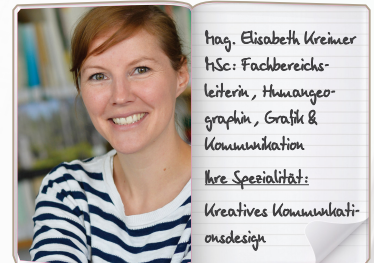 Mag. Elisabeth Kreimer
MSc: Fachbereichs-
leiterin, Humangeo-
graphin, Grafik &
Kommunikation
Ihre Spezialität:
Kreatives Kommunikati-
onsdesign